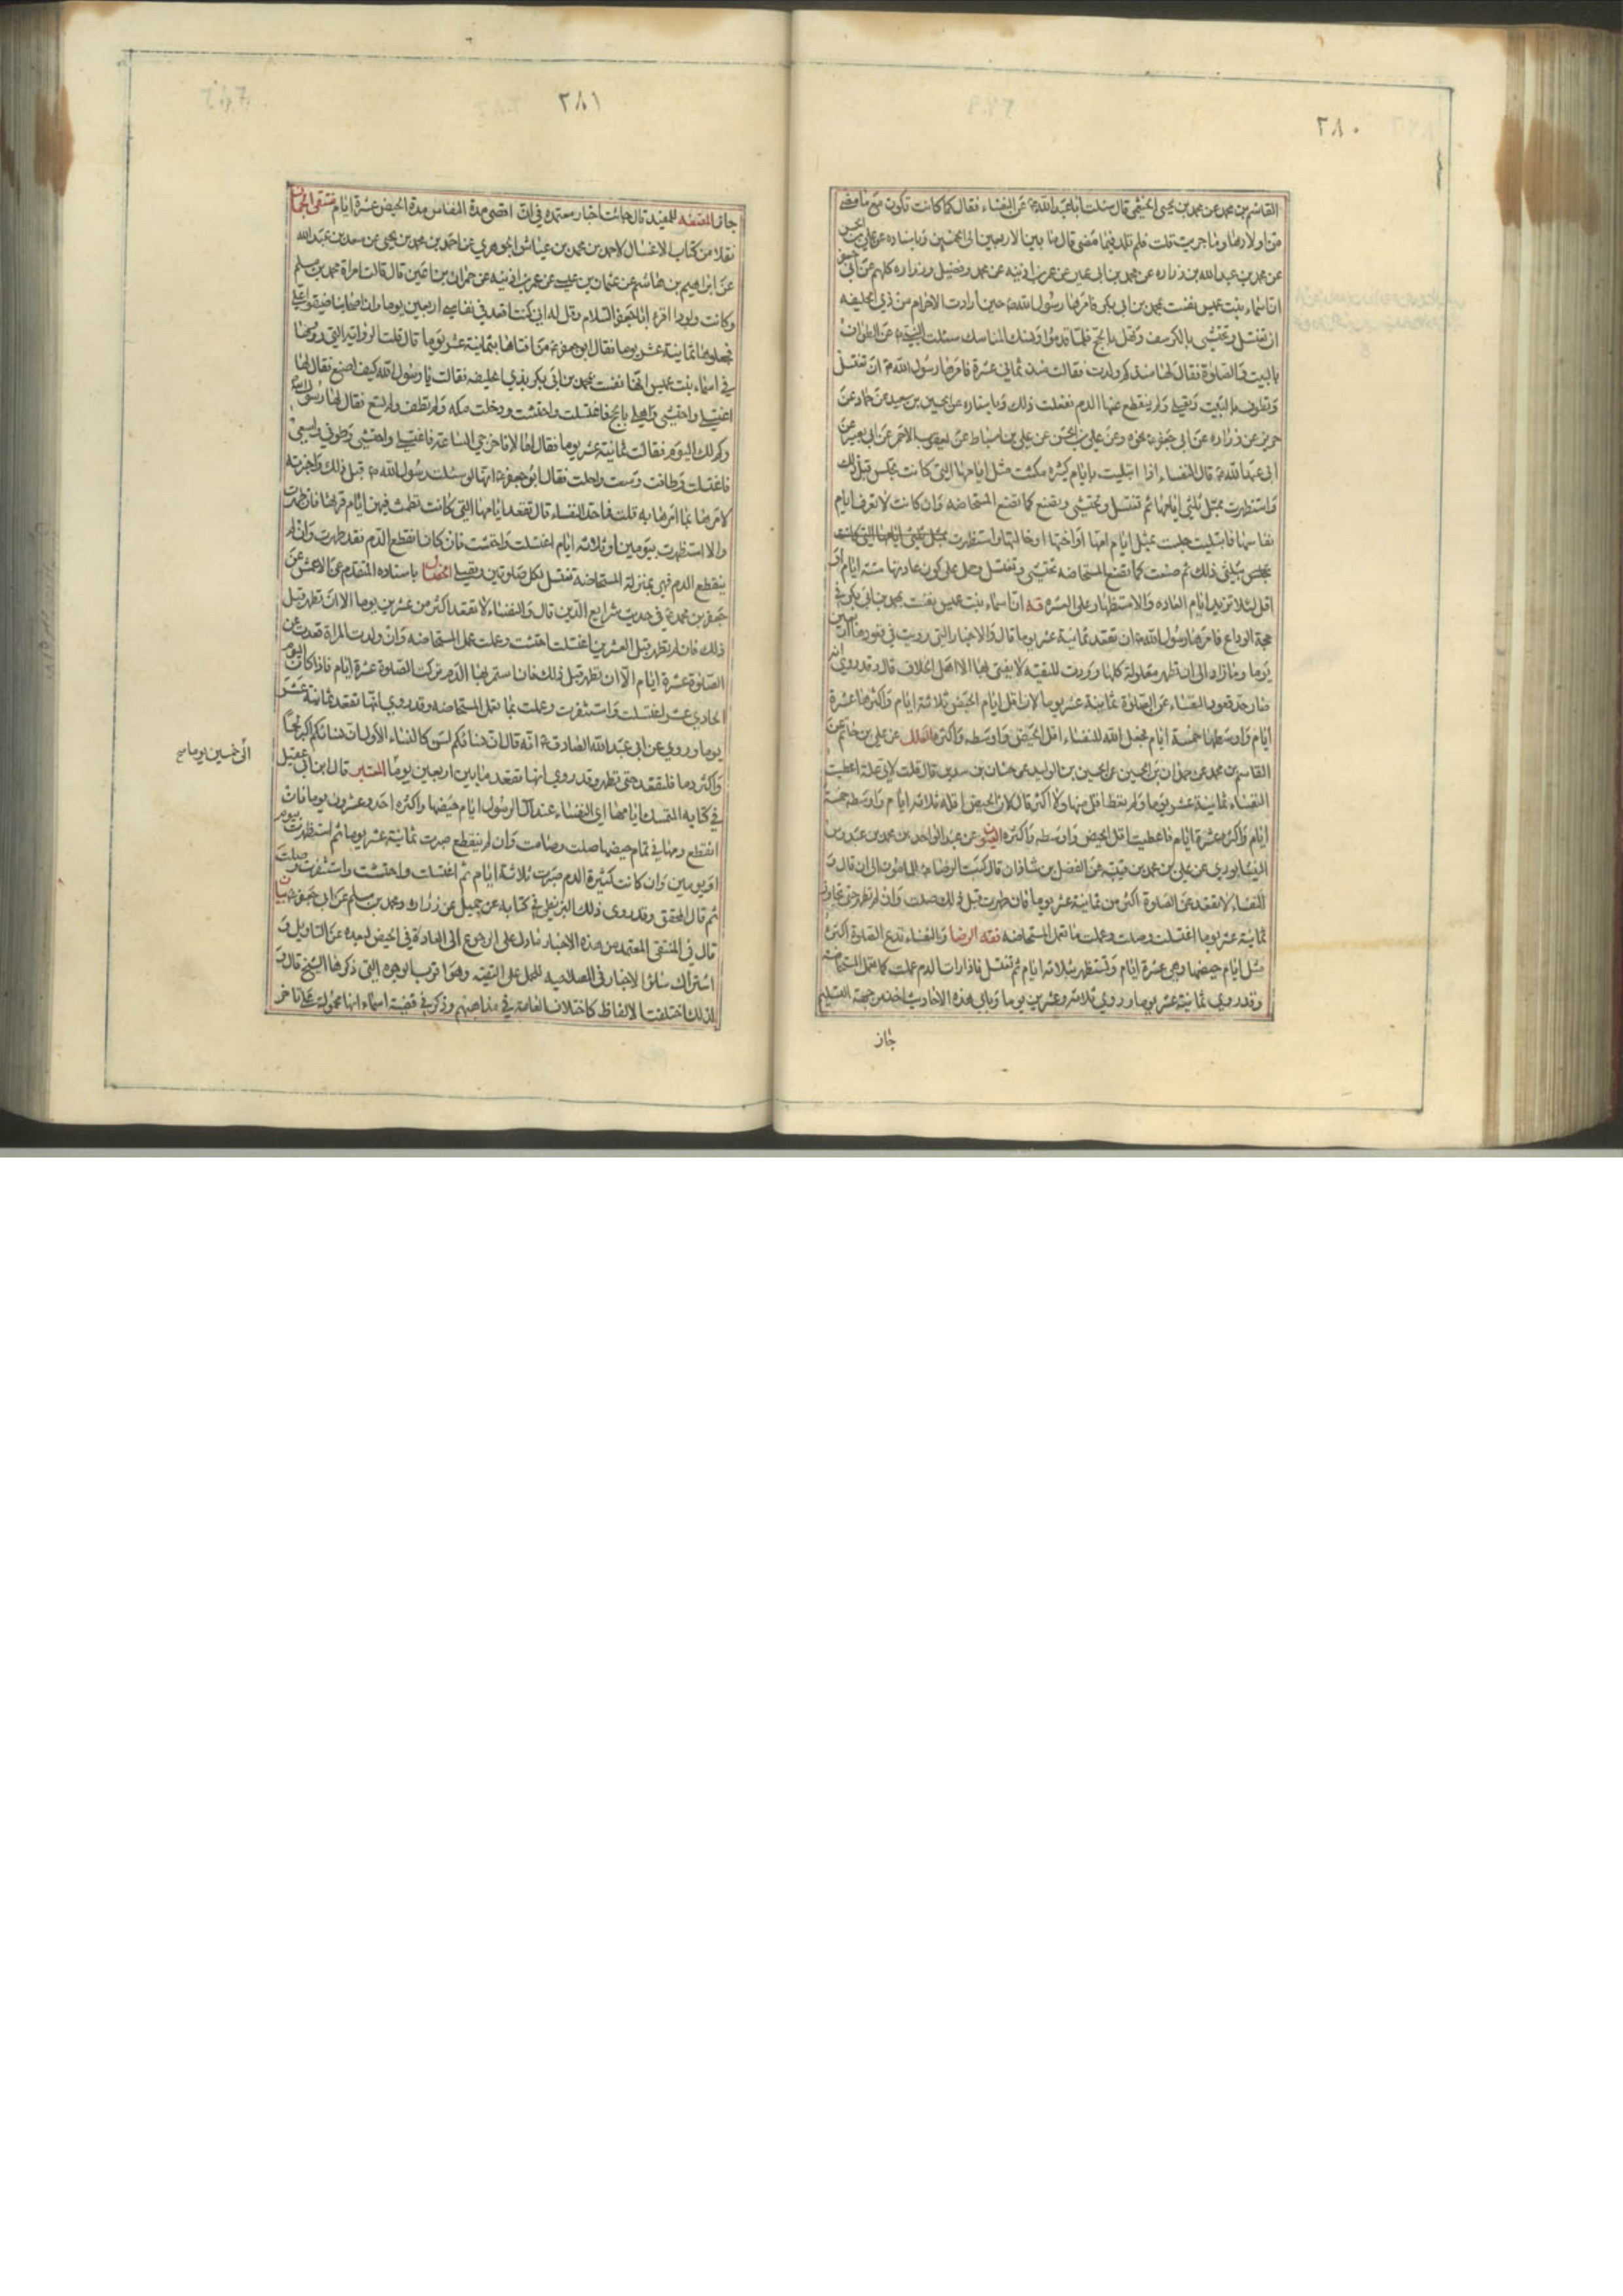 ٢٨٠
القاسم بن محمد عن محمد بن يحيى الخثعمي قال سئلت ابا عبد الله ع عن النفساء فقال كما كانت تكون مع ما مضى
من اولادها وما جربت قلت فلم تلد فيما مضى قال ما بين الاربعين الى الخمسين وباسناده عن علي بن الحسن
عن محمد بن عبد الله بن زراره عن محمد بن ابي عمير عن عمر بن اذينه عن محمد وفضيل وزراره كلهم عن ابي جعفر
ان اسماء بنت عميس نفست بمحمد بن ابي بكر فامرها رسول الله حين ارادت الاحرام من ذي الحليفه
ان تغتسل وتحتشي بالكرسف وتهل بالحج فلما قدموا ونسكوا المناسك سئلت النبي ص عن الطواف
بالبيت والصلوة فقال لها منذ كم ولدت فقالت منذ ثماني عشرة فامرها رسول الله ص ان تغتسل
وتطوف بالبيت وتصلي ولم ينقطع عنها الدم ففعلت ذلك وباسناده عن الحسين بن سعيد عن حماد عن
حريز عن زراره عن ابي جعفر ع نحوه وعن علي بن الحسن عن علي بن اسباط عن يعقوب الاحمر عن ابي بصير عن
ابي عبد الله ع قال النفساء اذا ابتليت بايام كثيره مكثت مثل ايامها التي كانت تجلس قبل ذلك
واستظهرت بمثل ثلثي ايامها ثم تغتسل وتحتشي وتصنع كما تصنع المستحاضه وان كانت لا تعرف ايام
نفاسها فابتليت جلست بمثل ايام امها او اختها او خالتها واستظهرت بمثل ثلثي ايامها التي كانت
بثلثي ذلك ثم صنعت كما تصنع المستحاضه تحتشي وتغتسل وحمل على كون عادتها ستة ايام او
اقل لئلا تزيد ايام العاده والاستظهار على العشره قه ان اسماء بنت عميس نفست بمحمد بن ابي بكر في
حجة الوداع فامرها رسول الله ص ان تقعد ثمانية عشر يوما قال والاخبار التي رويت في قعودها اربعين
يوما وما زاد الى ان تطهر معلولة كلها ووردت للتقيه لا يفتي بها الا اهل الخلاف قال وقد روي انه
صار حد قعود النفساء عن الصلوة ثمانية عشر يوما لان اقل ايام الحيض ثلاثة ايام واكثرها عشرة
ايام واوسطها خمسة ايام فجعل الله للنفساء اقل الحيض واوسطه واكثره العلل عن علي بن حاتم عن
القاسم بن محمد عن حمدان بن الحسين عن الحسين بن الوليد عن حنان بن سدير قال قلت لاي علة اعطيت
النفساء ثمانية عشر يوما ولم يعط اقل منها ولا اكثر قال لان الحيض اقله ثلاثه ايام واوسطه خمسة
ايام واكثره عشرة ايام فاعطيت اقل الحيض واوسطه واكثره العيون عن عبد الواحد بن محمد بن عبدوس
النيسابوري عن علي بن محمد بن قتيبه عن الفضل بن شاذان قال كتب الرضا ع الى المامون الى ان قال و
النفساء لا تقعد عن الصلوة اكثر من ثمانية عشر يوما فان طهرت قبل ذلك صلت وان لم تطهر حتى تجاوز
ثمانية عشر يوما اغتسلت وصلت وعملت ما تعمل المستحاضه فقه الرضا والنفساء تدع الصلوة اكثره
مثل ايام حيضها وهي عشرة ايام وتستظهر بثلاثه ايام ثم تغتسل فاذا رات الدم عملت كما تعمل المستحاضه
وقد روي ثمانية عشر يوما وروي ثلاثه وعشرين يوما وباي هذه الاحاديث اخذ من جهة التسليم
جاز
٢٨١
جاز المقنعه للمفيد قال جائت اخبار معتمده في ان اقصى مدة النفاس مدة الحيض عشرة ايام منتقى الجمان
نقلا من كتاب الاغسال لاحمد بن محمد بن عياش الجوهري عن احمد بن محمد بن يحيى عن سعد بن عبد الله
عن ابراهيم بن هاشم عن عثمان بن عيسى عن عمر بن اذينه عن حمران بن اعين قال قالت امراة محمد بن مسلم
وكانت ولودا اقرء ابا جعفر السلام وقل له اني كنت اقعد في نفاسي اربعين يوما وان اصحابنا ضيقوا علي
فجعلوها ثمانية عشر يوما فقال ابو جعفر ع من افتاها بثمانية عشر يوما قال قلت الرواية التي رووها
في اسماء بنت عميس انها نفست بمحمد بن ابي بكر بذي الحليفه فقالت يا رسول الله كيف اصنع فقال لها
اغتسلي واحتشي واهلي بالحج فاغتسلت واحتشت ودخلت مكه ولم تطف ولم تسع
فاغتسلت وطافت وسعت واحلت فقال ابو جعفر ع انها لو سئلت رسول الله ص قبل ذلك واخبرته
لامرها بما امرها به قلت فما حد النفساء قال تقعد ايامها التي كانت تطمث فيهن ايام قرئها فان طهرت
والا استظهرت بيومين او ثلاثه ايام اغتسلت واحتشت فان كان انقطع الدم فقد طهرت وان لم
ينقطع الدم فهي بمنزلة المستحاضه تغتسل لكل صلوتين وتصلي الخصال باسناده المتقدم عن الاعمش عن
جعفر بن محمد ع في حديث شرايع الدين قال والنفساء لا تقعد اكثر من عشرين يوما الا ان تطهر قبل
ذلك فان لم تطهر قبل العشرين اغتسلت احتشت وعملت عمل المستحاضه وان ولدت المراة قعدت عن
الصلوة عشرة ايام الا ان تطهر قبل ذلك فان استمر بها الدم تركت الصلوة عشرة ايام فاذا كان اليوم
الحادي عشر اغتسلت واستثفرت وعملت بما تعمل المستحاضه وقد روي انها تقعد ثمانية عشر
يوما وروي عن ابي عبد الله الصادق ع انه قال ان نسائكم لسن كالنساء الاول ان نسائكم اكبر لحما
واكثر دما فلتقعد حتى تطهر وقد روي انها تقعد ما بين اربعين يوما المعتبر قال ابن ابي عقيل
الى خمسين يوما صح
في كتابه المتمسك ايامها اي النفساء عند آل الرسول ايام حيضها واكثره احد وعشرون يوما فان
انقطع دمها في تمام حيضها صلت وصامت وان لم ينقطع صبرت ثمانية عشر يوما ثم استظهرت بيوم
او يومين وان كانت كثيرة الدم صبرت ثلاثة ايام ثم اغتسلت واحتشت واستثفرت وصلت
ثم قال المحقق وقد روى ذلك البزنطي في كتابه عن جميل عن زرارة ومحمد بن مسلم عن ابي جعفر
قال في المنتقى المعتمد من هذه الاخبار ما دل على الرجوع الى العادة في الحيض لبعده عن التاويل و
اشتراك سائر الاخبار في الصلاحيه للحمل على التقيه وهو اقرب الوجوه التي ذكرها الشيخ قال و
لذلك اختلفت الالفاظ كاختلاف العامه في مذاهبهم وذكر في قضية اسماء انها محمولة على تاخر